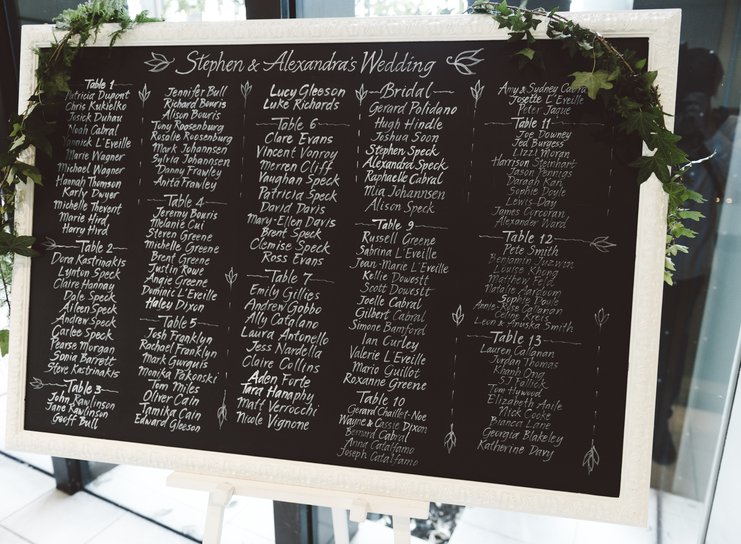 Stephen & Alexandra's Wedding
Table 1
Patricia Dupont
Chris Kukielko
Josick Duhau
Noah Cabral
Yannick L'Eveille
Marie Wagner
Michael Wagner
Hannah Thomson
Karly Dwyer
Michelle Thorent
Marie Hird
Harry Hird
Table 2
Dora Kastrinakis
Lynton Speck
Claire Hannay
Dale Speck
Aileen Speck
Andrew Speck
Carlee Speck
Pearse Morgan
Sonia Barrett
Steve Kastrinakis
Table 3
John Rawlinson
Jane Rawlinson
Geoff Bull
Jennifer Bull
Richard Bouris
Alison Bouris
Tony Roosenburg
Rosalie Roosenburg
Mark Johannsen
Sylvia Johannsen
Danny Frawley
Anita Frawley
Table 4
Jeremy Bouris
Melanie Cui
Steven Greene
Michelle Greene
Brent Greene
Justin Rowe
Angie Greene
Dominic L'Eveille
Haley Dixon
Table 5
Josh Franklyn
Rachael Franklyn
Mark Gurguis
Monika Pokonski
Tom Miles
Oliver Cain
Tamika Cain
Edward Gleeson
Lucy Gleeson
Luke Richards
Table 6
Clare Evans
Vincent Vonroy
Merren Cliff
Vaughan Speck
Patricia Speck
David Davis
Mary-Ellen Davis
Brent Speck
Clemise Speck
Ross Evans
Table 7
Emily Gillies
Andrew Gobbo
Ally Catalano
Laura Antonello
Jess Nardella
Claire Collins
Aden Forte
Tara Hanaphy
Matt Verrocchi
Nicole Vignone
Bridal
Gerard Polidano
Hugh Hindle
Joshua Soon
Stephen Speck
Alexandra Speck
Raphaelle Cabral
Mia Johannsen
Alison Speck
Table 9
Russell Greene
Sabrina L'Eveille
Jean-Marie L'Eveille
Kellie Dowsett
Scott Dowsett
Joelle Cabral
Gilbert Cabral
Simone Bamford
Ian Curley
Valerie L'Eveille
Mario Guillot
Roxanne Greene
Table 10
Gerard Chaillet-Noe
Wayne & Cassie Dixon
Bernard Cabral
Anna Catalfamo
Joseph Catalfamo
Amy & Sydney Cabral
Josette L'Eveille
Peter Jaque
Table 11
Joe Downey
Jed Burgess
Lizzi Moran
Harrison Steinhart
Jason Pennias
Daragh Kan
Sophie Doyle
Lewis Day
James Corcoran
Alexander Ward
Table 12
Pete Smith
Benjamin Juzwin
Louise Khong
Matthew Feld
Natalie Anderson
Sophie Poule
Callanan
Celine Kreis
Leon & Anuska Smith
Table 13
Lauren Callanan
Jordan Thomas
Khanh Ong
SJ Tollick
Tom Hywood
Elizabeth Anile
Nick Cooke
Bianca Lane
Georgia Blakeley
Katherine Davy